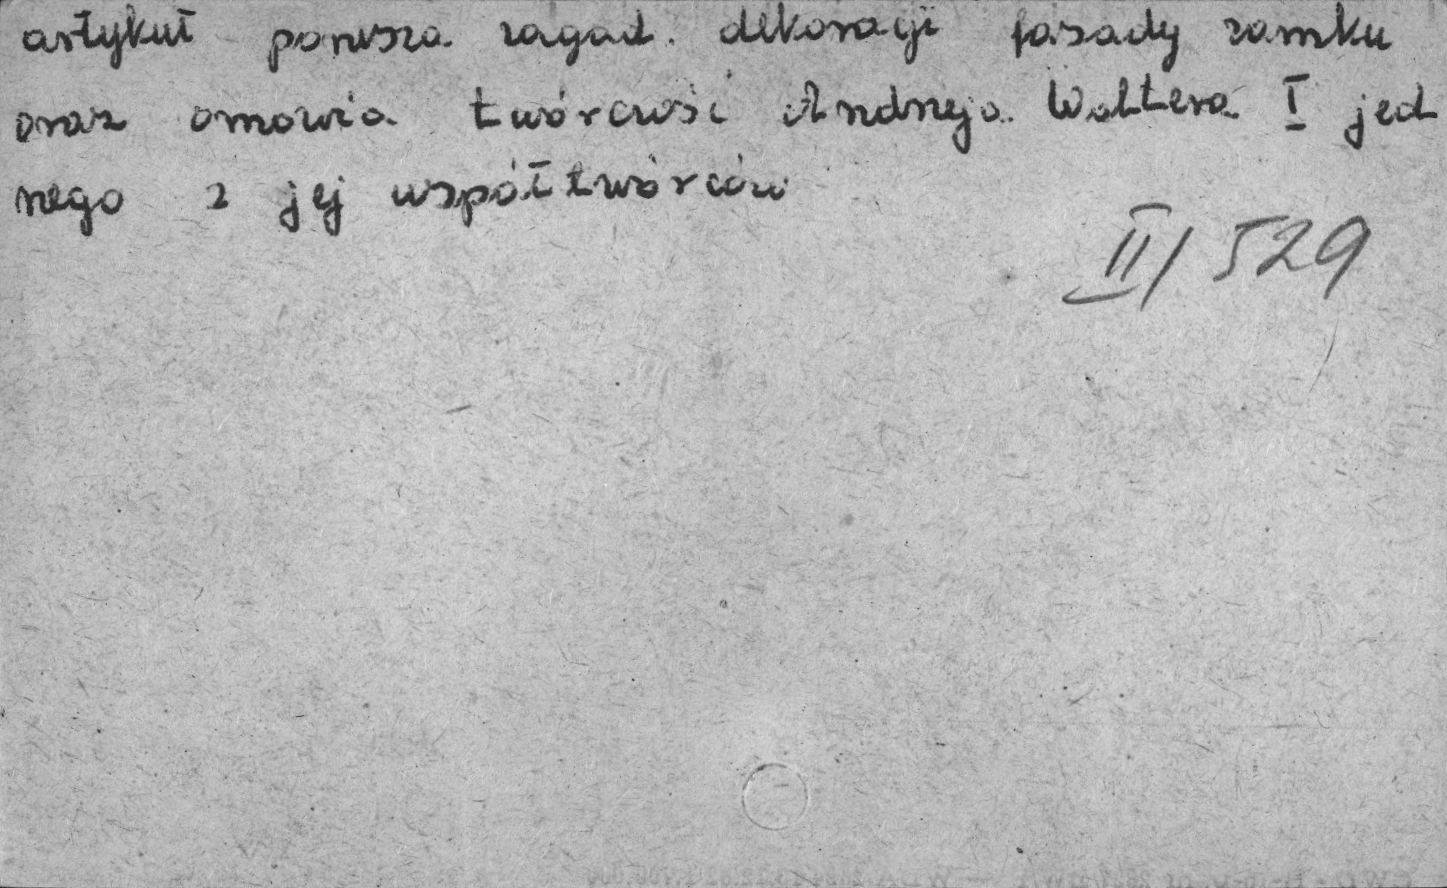 artykuł porusza zagad. dekoracji fasady zamku
oraz omawia twórczość Andrzeja Waltera I jed
nego z jej współtwórców
II/529